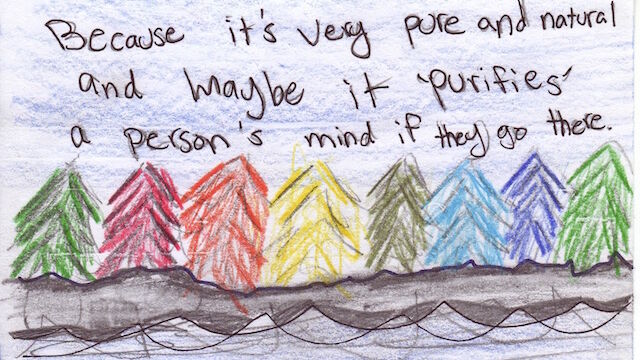 Because it's very pure and natural
and maybe it 'purifies'
a person's mind if they go there.